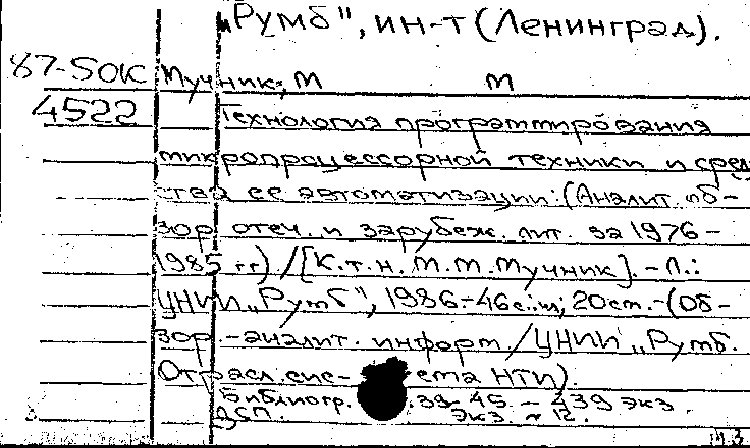 „Румб", ин-т (Ленинград).
87-50К Мучник, М М
4522 Технология программирования
микропроцессорной техники и сред
ства ее автоматизации: (Аналит. об-
зор отеч. и зарубеж. лит. за 1976-
1985 гг) / [К.т.н. М.М. Мучник]. - Л.:
ЦНИИ „Румб", 1986-46 с.: ил; 20 см. - (Об-
зор. - аналит. информ. / ЦНИИ „Румб.
Отрасл. сис- ема НТИ).
Библиогр. : 39-45 - 439 экз.
ДСП. Экз. 12.